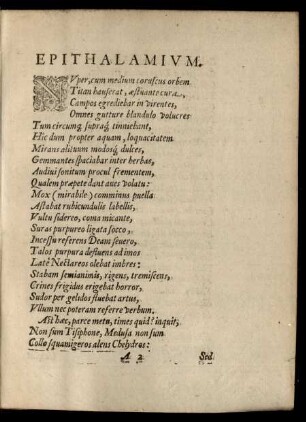 EPITHALAMIVM.
NVper, cum medium coruscus orbem
Titan hauserat, æstuante cura,
Campos egrediebar in virentes,
Omnes gutture blandulo volucres
Tum circumq; supraq; tinniebant,
Hic dum propter aquam, loquacitatem
Mirans alituum modosq; dulces,
Gemmantes spaciabar inter herbas,
Audiui sonitum procul frementem,
Qualem præpete dant aues volatu:
Mox (mirabile) comminus puella
Astabat rubicundulis labellis,
Vultu sidereo, coma micante,
Suras purpureo ligata socco,
Incessu referens Deam seuero,
Talos purpura defluens ad imos
Latè Nectareos olebat imbres:
Stabam semianimis, rigens, tremiscens,
Crines frigidus erigebat horror,
Sudor per gelidos fluebat artus,
Vllum nec poteram referre verbum.
Ast hæc, parce metu, times quid? inquit,
Non sum Tisiphone, Medusa non sum
Collo squamigeros alens Chelydros:
A 2 Sed